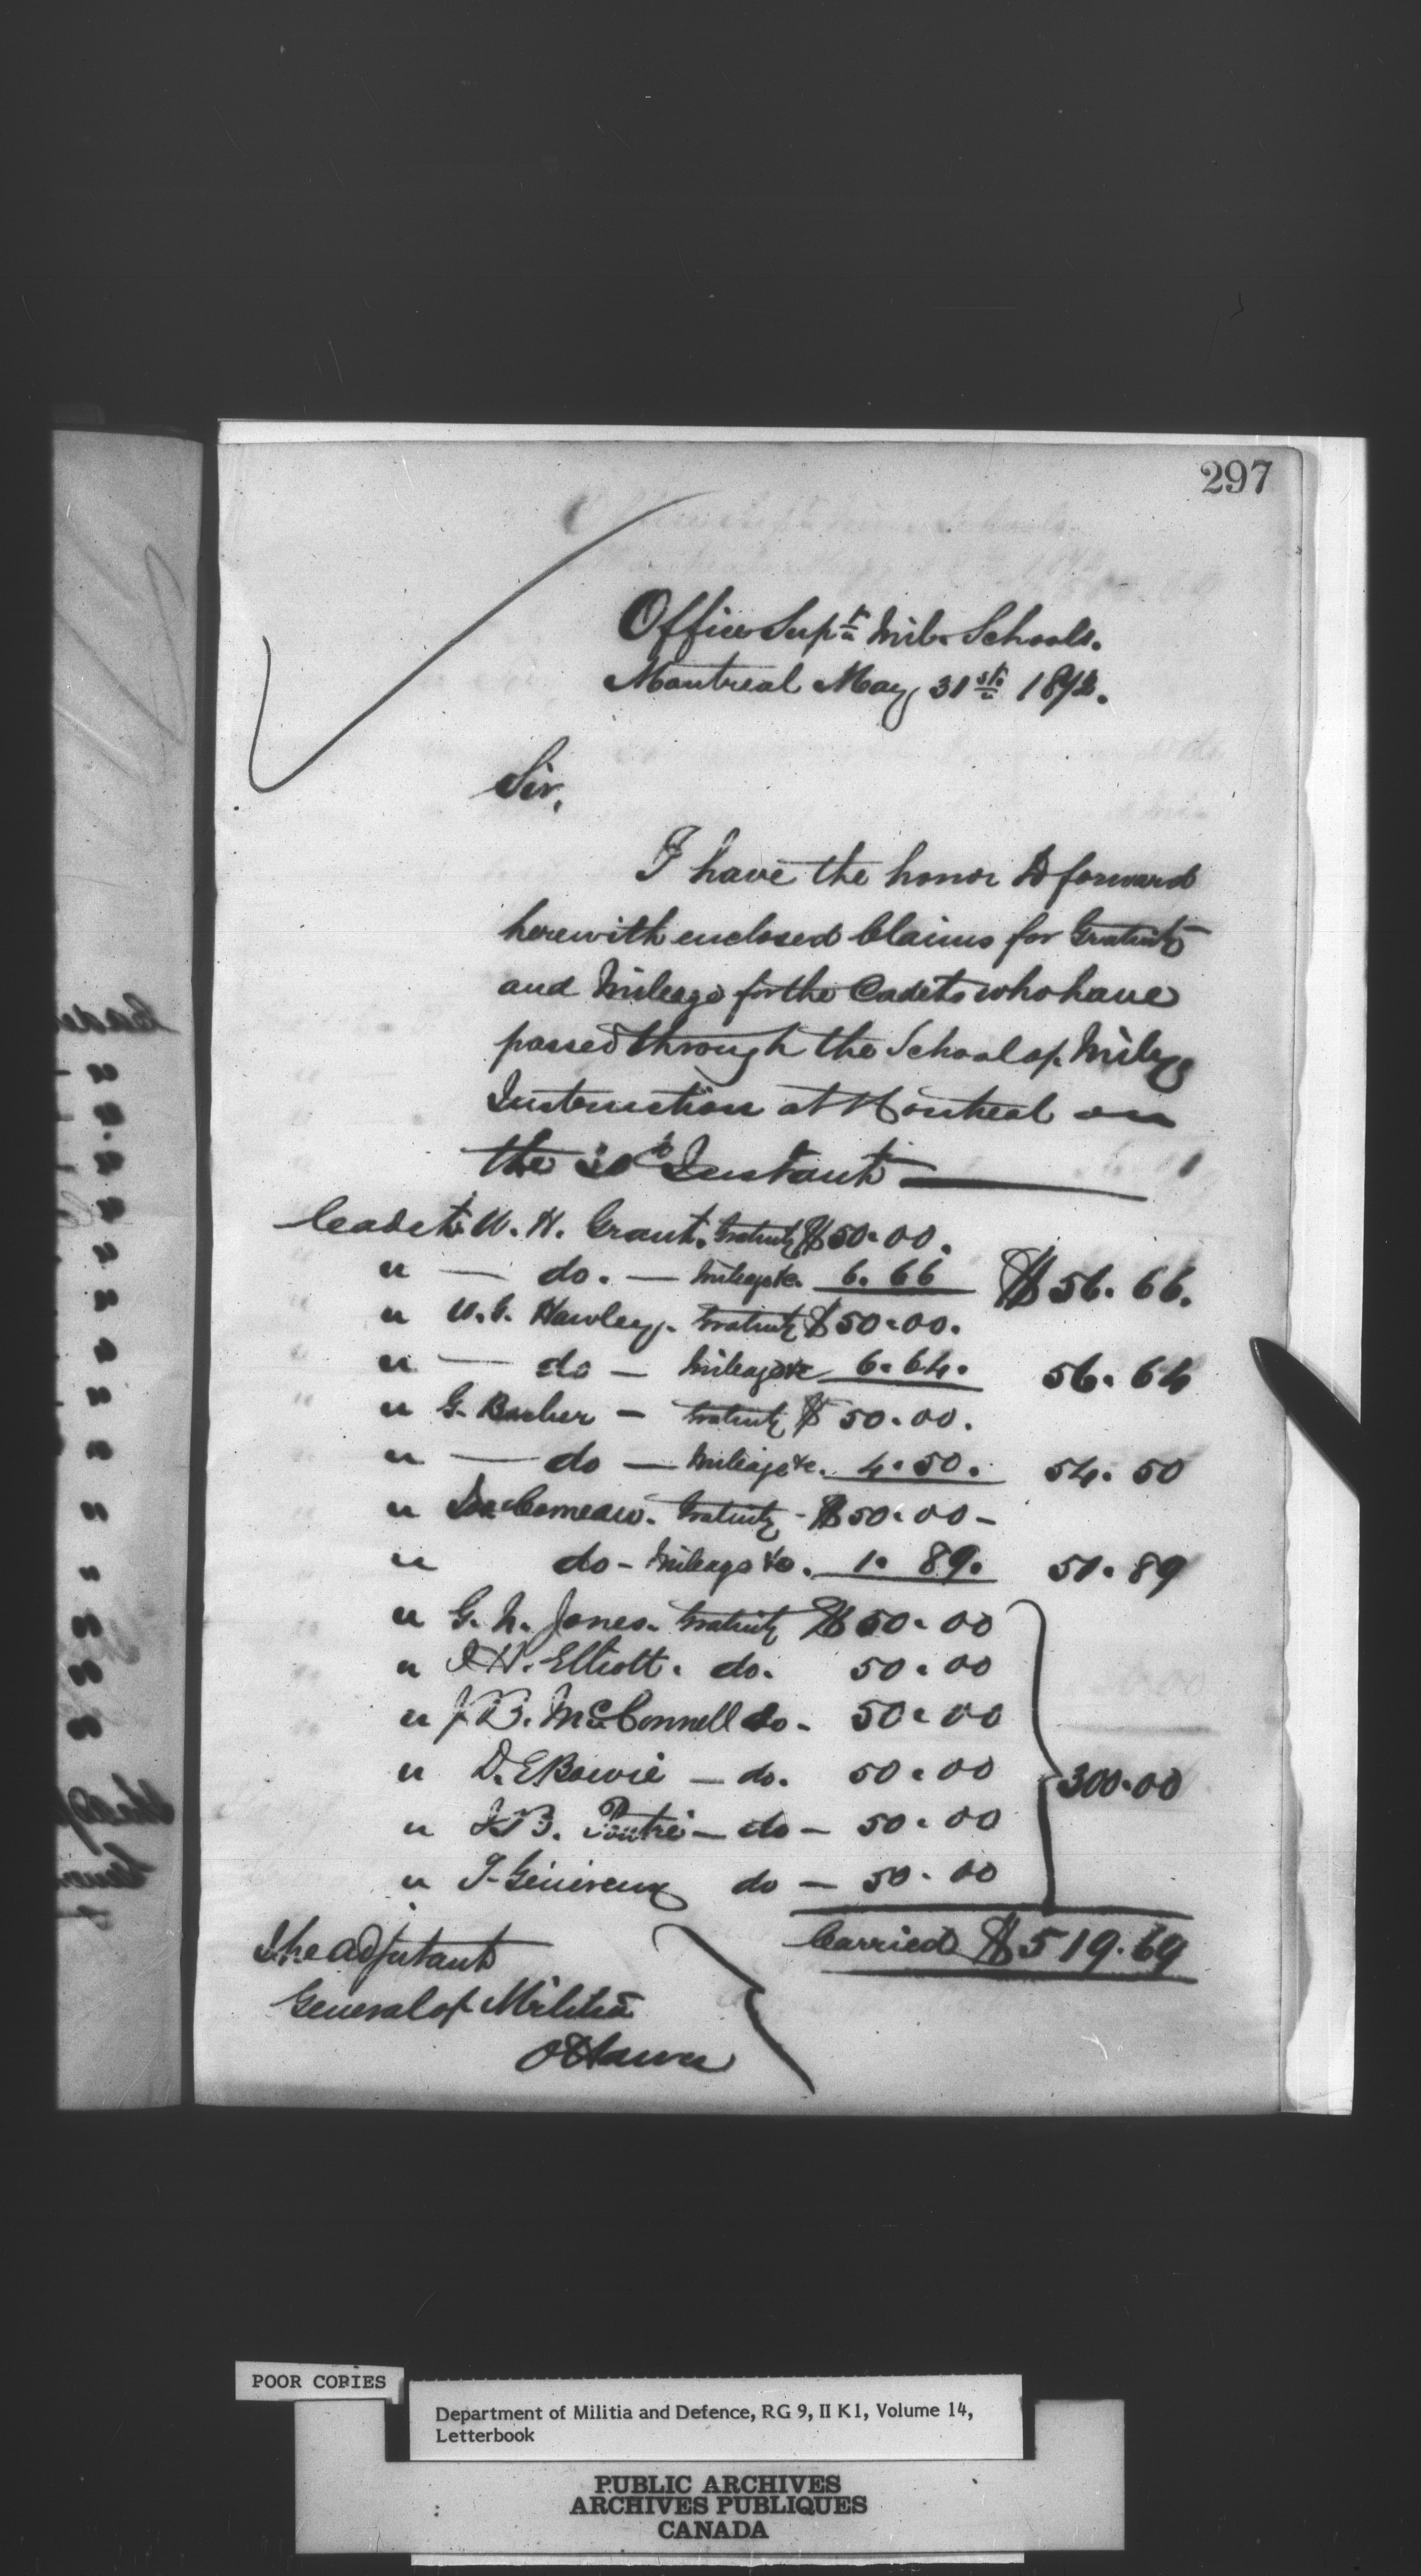 297
Office Supt. Mil. Schools.
Montreal May 31st. 1872.
Sir,
I have the honor to forward
herewith enclosed Claims for Gratuity
and Mileage for the Cadets who have
passed through the School of Mily
Instruction at Montreal on
the Instant
Cadet W. H. Grant. Gratuity $50.00.
" — do. — Mileage &c. 6.66 $56.66.
" W. G. Hawley. Gratuity $50.00.
" — do — Mileage &c 6.64. 56.64
" G. Barber — Gratuity $50.00.
" — do — Mileage &c. 4.50. 54.50
" Comeau. Gratuity - $50.00 -
" do - Mileage &c. 1.89. 51.89
" G. N. Jones. Gratuity $50.00
" J. H. Elliott. do. 50.00
" J. B. McConnell do. 50.00
" D. E Bowie — do. 50.00 300.00
" J. B. Poutré — do — 50.00
" J. Généreux do — 50.00
Carried $519.69
The Adjutant
General of Militia
Ottawa
POOR COPIES
Department of Militia and Defence, RG 9, II K1, Volume 14,
Letterbook
PUBLIC ARCHIVES
ARCHIVES PUBLIQUES
CANADA